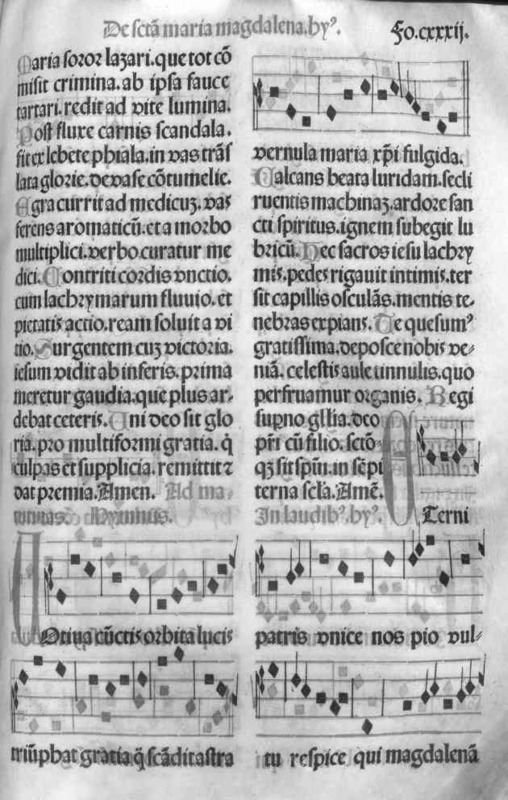 De sctã maria magdalena. hyꝰ. Fo.cxxxij.
Maria soror lazari. que tot cõ
misit crimina. ab ipsa fauce
tartari. redit ad vite lumina.
Post fluxe carnis scandala.
fit ex lebete phiala. in vas trãs
lata glorie. de vase cõtumelie.
Egra currit ad medicuȝ. vas
ferens aromaticũ. et a morbo
multiplici. verbo curatur me
dici. Contriti cordis vnctio.
cum lachrymarum fluuio. et
pietatis actio. ream soluit a vi
tio. Surgentem cuȝ victoria.
iesum vidit ab inferis. prima
meretur gaudia. que plus ar-
debat ceteris. Uni deo sit glo
ria. pro multiformi gratia. q̃
culpas et supplicia. remittit ⁊
dat premia. Amen. Ad ma-
tutinas. Hymnus.
Votiua cũctis orbita lucis
triũphat gratia q̃ scãdit astra
vernula maria xp̃i fulgida.
Calcans beata luridam. secli
ruentis machinaȝ. ardore san
cti spiritus. ignem subegit lu
bricũ. Hec sacros iesu lachry
mis. pedes rigauit intimis. ter
sit capillis osculãs. mentis te-
nebras expians. Te quesumꝰ
gratissima. deposce nobis ve-
niã. celestis aule vinnulis. quo
perfruamur organis. Regi
supno gl̃lia. deo
pr̃i cũ filio. sctõ
qȝ sit sp̃ui. in sẽpi
terna scl̃a. Amẽ.
In laudibꝰ. hyꝰ. Æterni
patris vnice nos pio vul-
tu respice qui magdalenã